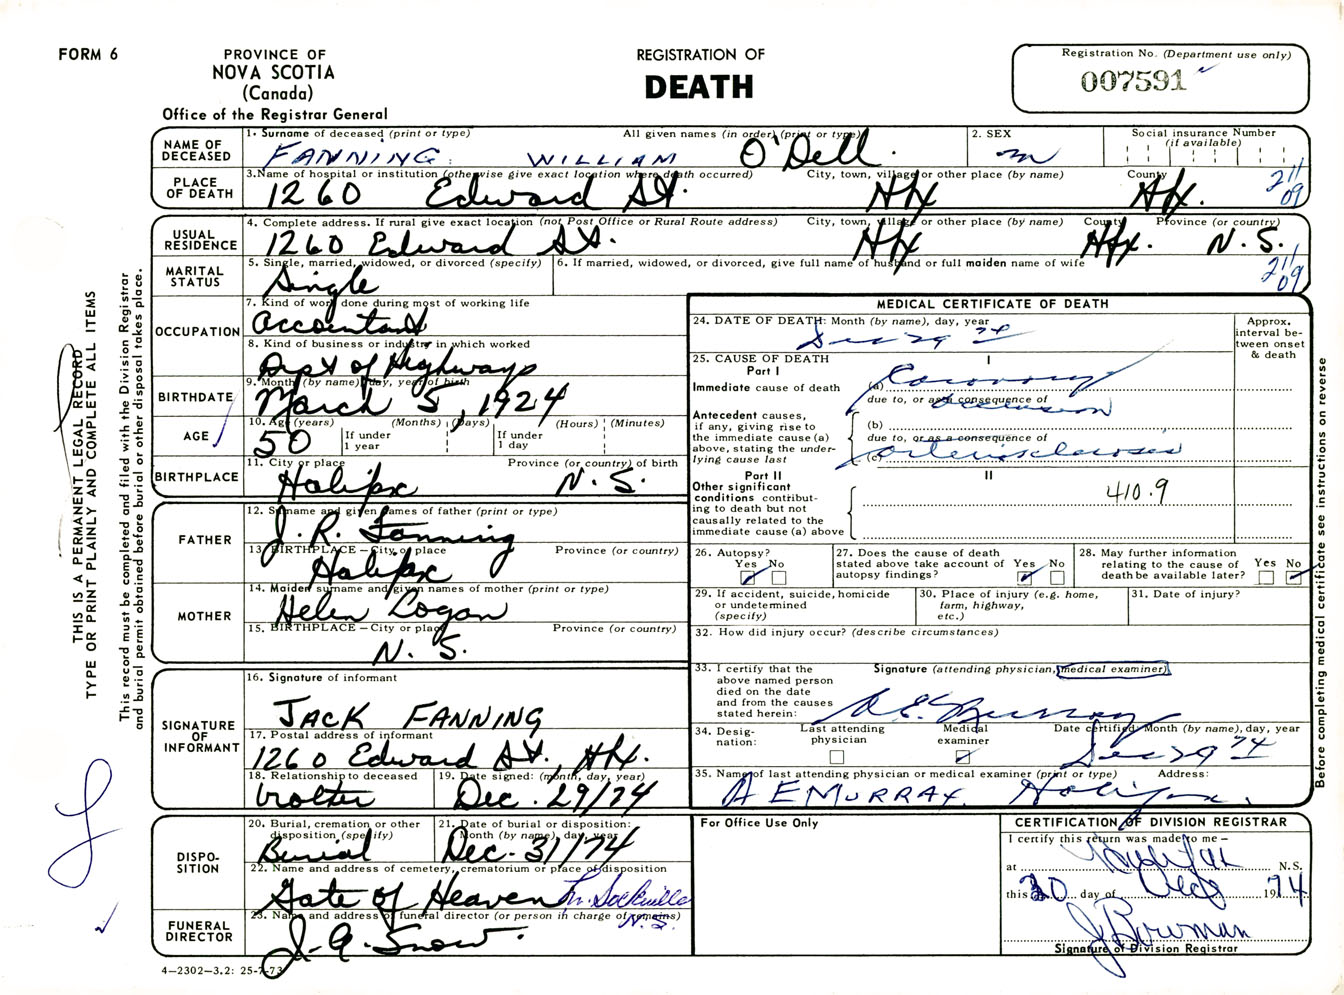 FORM 6
PROVINCE OF
NOVA SCOTIA
(Canada)
Office of the Registrar General
REGISTRATION OF
DEATH
Registration No. (Department use only)
007591
NAME OF DECEASED
1. Surname of deceased (print or type) All given names (in order) (print or type)
FANNING. WILLIAM O'Dell.
2. SEX
m
Social insurance Number
(if available)
PLACE OF DEATH
3. Name of hospital or institution (otherwise give exact location where death occurred) City, town, village or other place (by name) County
1260 Edward St. Hfx Hfx.
211
09
USUAL RESIDENCE
4. Complete address. If rural give exact location (not Post Office or Rural Route address) City, town, village or other place (by name) County Province (or country)
1260 Edward St. Hfx Hfx. N.S.
211
09
MARITAL STATUS
5. Single, married, widowed, or divorced (specify)
Single
6. If married, widowed, or divorced, give full name of husband or full maiden name of wife
OCCUPATION
7. Kind of work done during most of working life
Accountant
8. Kind of business or industry in which worked
Dept of Highways
BIRTHDATE
9. Month (by name), day, year of birth
March 5, 1924
AGE
10. Age (years) (Months) (Days) (Hours) (Minutes)
50 If under 1 year If under 1 day
BIRTHPLACE
11. City or place Province (or country) of birth
Halifax N.S.
FATHER
12. Surname and given names of father (print or type)
J. R. Fanning
13. BIRTHPLACE – City or place Province (or country)
Halifax
MOTHER
14. Maiden surname and given names of mother (print or type)
Helen Logan
15. BIRTHPLACE – City or place Province (or country)
N. S.
SIGNATURE OF INFORMANT
16. Signature of informant
JACK FANNING
17. Postal address of informant
1260 Edward St., Hfx.
18. Relationship to deceased
brother
19. Date signed: (month, day, year)
Dec. 29/74
DISPO-
SITION
20. Burial, cremation or other disposition (specify)
Burial
21. Date of burial or disposition: Month (by name), day, year
Dec. 31/74
22. Name and address of cemetery, crematorium or place of disposition
Gate of Heaven Lr. Sackville
N.S.
FUNERAL DIRECTOR
23. Name and address of funeral director (or person in charge of remains)
J. A. Snow.
4–2302–3.2: 25-7-73
MEDICAL CERTIFICATE OF DEATH
24. DATE OF DEATH: Month (by name), day, year
Dec 29 74
Approx. interval be-
tween onset & death
25. CAUSE OF DEATH
Part I
I
Immediate cause of death
(a) Coronary
due to, or as a consequence of
occlusion
Antecedent causes,
if any, giving rise to
the immediate cause (a)
above, stating the under-
lying cause last
(b)
due to, or as a consequence of
(c) arteriosclerosis
Part II
II
Other significant
conditions contribut-
ing to death but not
causally related to the
immediate cause (a) above
410.9
26. Autopsy?
Yes No
27. Does the cause of death
stated above take account of
autopsy findings?
Yes No
28. May further information
relating to the cause of
death be available later?
Yes No
29. If accident, suicide, homicide
or undetermined
(specify)
30. Place of injury (e.g. home,
farm, highway,
etc.)
31. Date of injury?
32. How did injury occur? (describe circumstances)
33. I certify that the
above named person
died on the date
and from the causes
stated herein:
Signature (attending physician, medical examiner)
A.E. Murray
34. Desig-
nation:
Last attending physician
Medical examiner
Date certified: Month (by name), day, year
Dec 29 74
35. Name of last attending physician or medical examiner (print or type) Address:
A E MURRAY. Halifax.
For Office Use Only
CERTIFICATION OF DIVISION REGISTRAR
I certify this return was made to me –
at Halifax N.S.
this 30 day of Dec 1974
J Bowman
Signature of Division Registrar
THIS IS A PERMANENT LEGAL RECORD
TYPE OR PRINT PLAINLY AND COMPLETE ALL ITEMS
This record must be completed and filed with the Division Registrar
and burial permit obtained before burial or other disposal takes place.
Before completing medical certificate see instructions on reverse